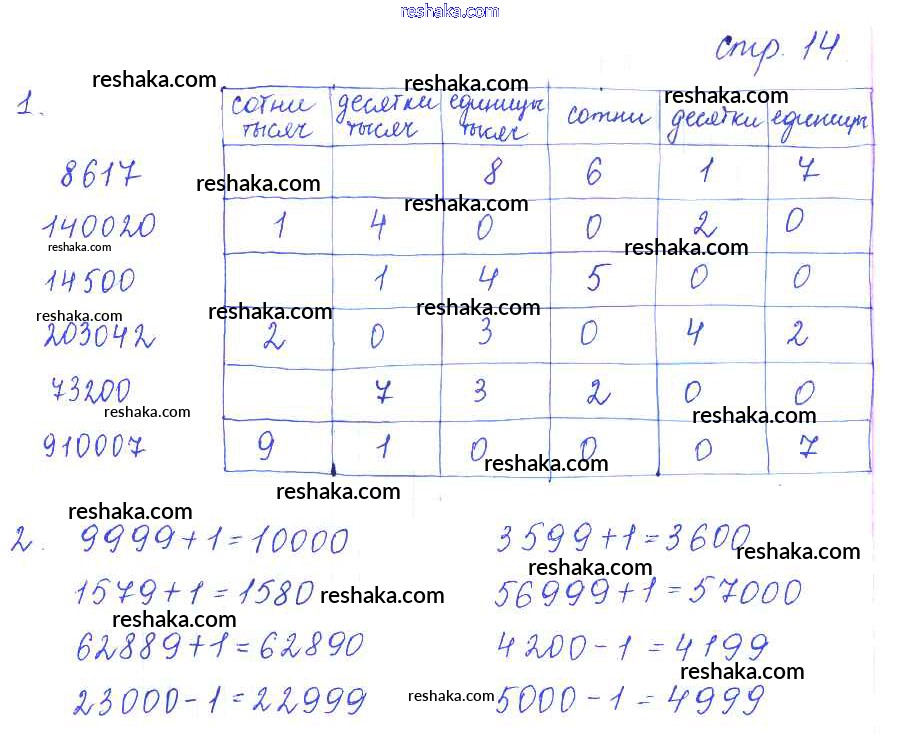 reshaka.com
стр. 14
reshaka.com
reshaka.com
reshaka.com
1.
сотни тысяч десятки тысяч единицы тысяч сотни десятки единицы
8617 8 6 1 7
reshaka.com
reshaka.com
140020 1 4 0 0 2 0
reshaka.com
reshaka.com
14500 1 4 5 0 0
reshaka.com
reshaka.com
reshaka.com
203042 2 0 3 0 4 2
73200 7 3 2 0 0
reshaka.com
reshaka.com
910007 9 1 0 0 0 7
reshaka.com
reshaka.com
reshaka.com
2. 9999+1=10000 3599+1=3600
reshaka.com
reshaka.com
1579+1=1580 reshaka.com 56999+1=57000
reshaka.com
62889+1=62890 4200-1=4199
reshaka.com
23000-1=22999 reshaka.com 5000-1=4999